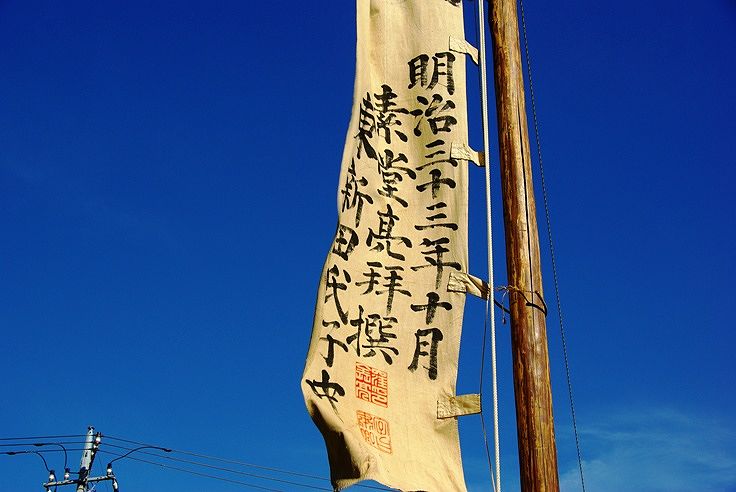 明治三十三年十月
素堂亮拜撰
東新田氏子中